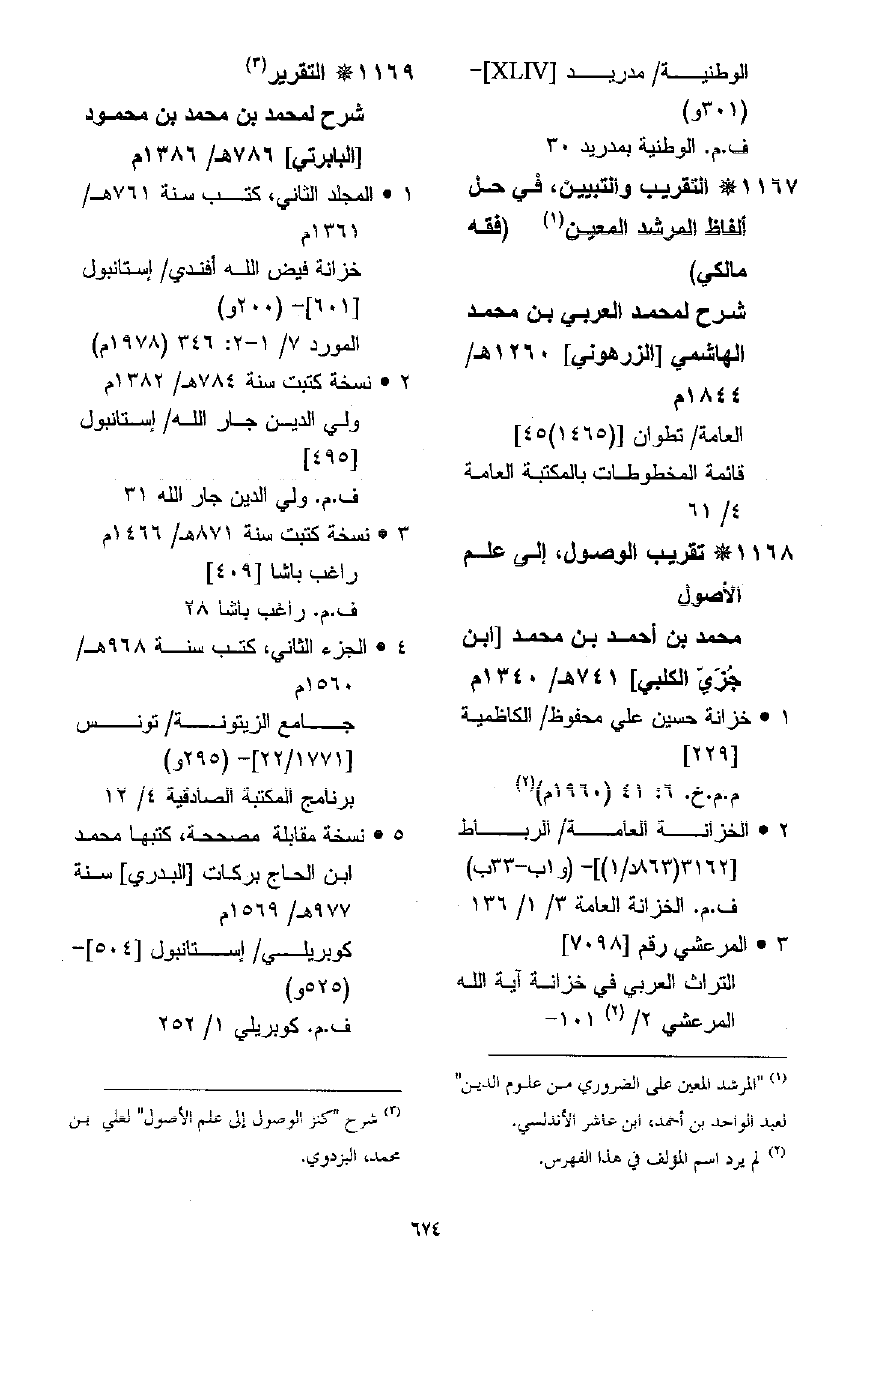 الوطنية/ مدريد [XLIV]–
(٣٠١و)
ف.م. الوطنية بمدريد ٣٠
١١٦٧ ※ التقريب والتبيين، في حل
ألفاظ المرشد المعين(١) (فقه
مالكي)
شرح لمحمد العربي بن محمد
الهاشمي [الزرهوني] ١٢٦٠هـ/
١٨٤٤م
العامة/ تطوان [(١٤٦٥)٤٥]
قائمة المخطوطات بالمكتبة العامة
٤/ ٦١
١١٦٨ ※ تقريب الوصول، إلى علم
الأصول
محمد بن أحمد بن محمد [ابن
جُزَيّ الكلبي] ٧٤١هـ/ ١٣٤٠م
١ • خزانة حسين علي محفوظ/ الكاظمية
[٢٢٩]
م.م.خ. ٦: ٤١ (١٩٦٠م)(٢)
٢ • الخزانة العامة/ الرباط
[٣١٦٢(٨٦٣د/١)]– (و١ب–٣٣ب)
ف.م. الخزانة العامة ٣/ ١/ ١٣٦
٣ • المرعشي رقم [٧٠٩٨]
التراث العربي في خزانة آية الله
المرعشي ٢/ (٢) ١٠١–
(١) "المرشد المعين على الضروري من علوم الدين"
لعبد الواحد بن أحمد، ابن عاشر الأندلسي.
(٢) لم يرد اسم المؤلف في هذا الفهرس.
١١٦٩ ※ التقرير(٣)
شرح لمحمد بن محمد بن محمود
[البابرتي] ٧٨٦هـ/ ١٣٨٦م
١ • المجلد الثاني، كتب سنة ٧٦١هـ/
١٣٦١م
خزانة فيض الله أفندي/ إستانبول
[٦٠١]– (٢٠٠و)
المورد ٧/ ١–٢: ٣٤٦ (١٩٧٨م)
٢ • نسخة كتبت سنة ٧٨٤هـ/ ١٣٨٢م
ولي الدين جار الله/ إستانبول
[٤٩٥]
ف.م. ولي الدين جار الله ٣١
٣ • نسخة كتبت سنة ٨٧١هـ/ ١٤٦٦م
راغب باشا [٤٠٩]
ف.م. راغب باشا ٢٨
٤ • الجزء الثاني، كتب سنة ٩٦٨هـ/
١٥٦٠م
جامع الزيتونة/ تونس
[٢٢/١٧٧١]– (٢٩٥و)
برنامج المكتبة الصادقية ٤/ ١٢
٥ • نسخة مقابلة مصححة، كتبها محمد
ابن الحاج بركات [البدري] سنة
٩٧٧هـ/ ١٥٦٩م
كوبريلي/ إستانبول [٥٠٤]–
(٥٢٥و)
ف.م. كوبريلي ١/ ٢٥٢
(٣) شرح "كنز الوصول إلى علم الأصول" لعلي بن
محمد، البزدوي.
٦٧٤